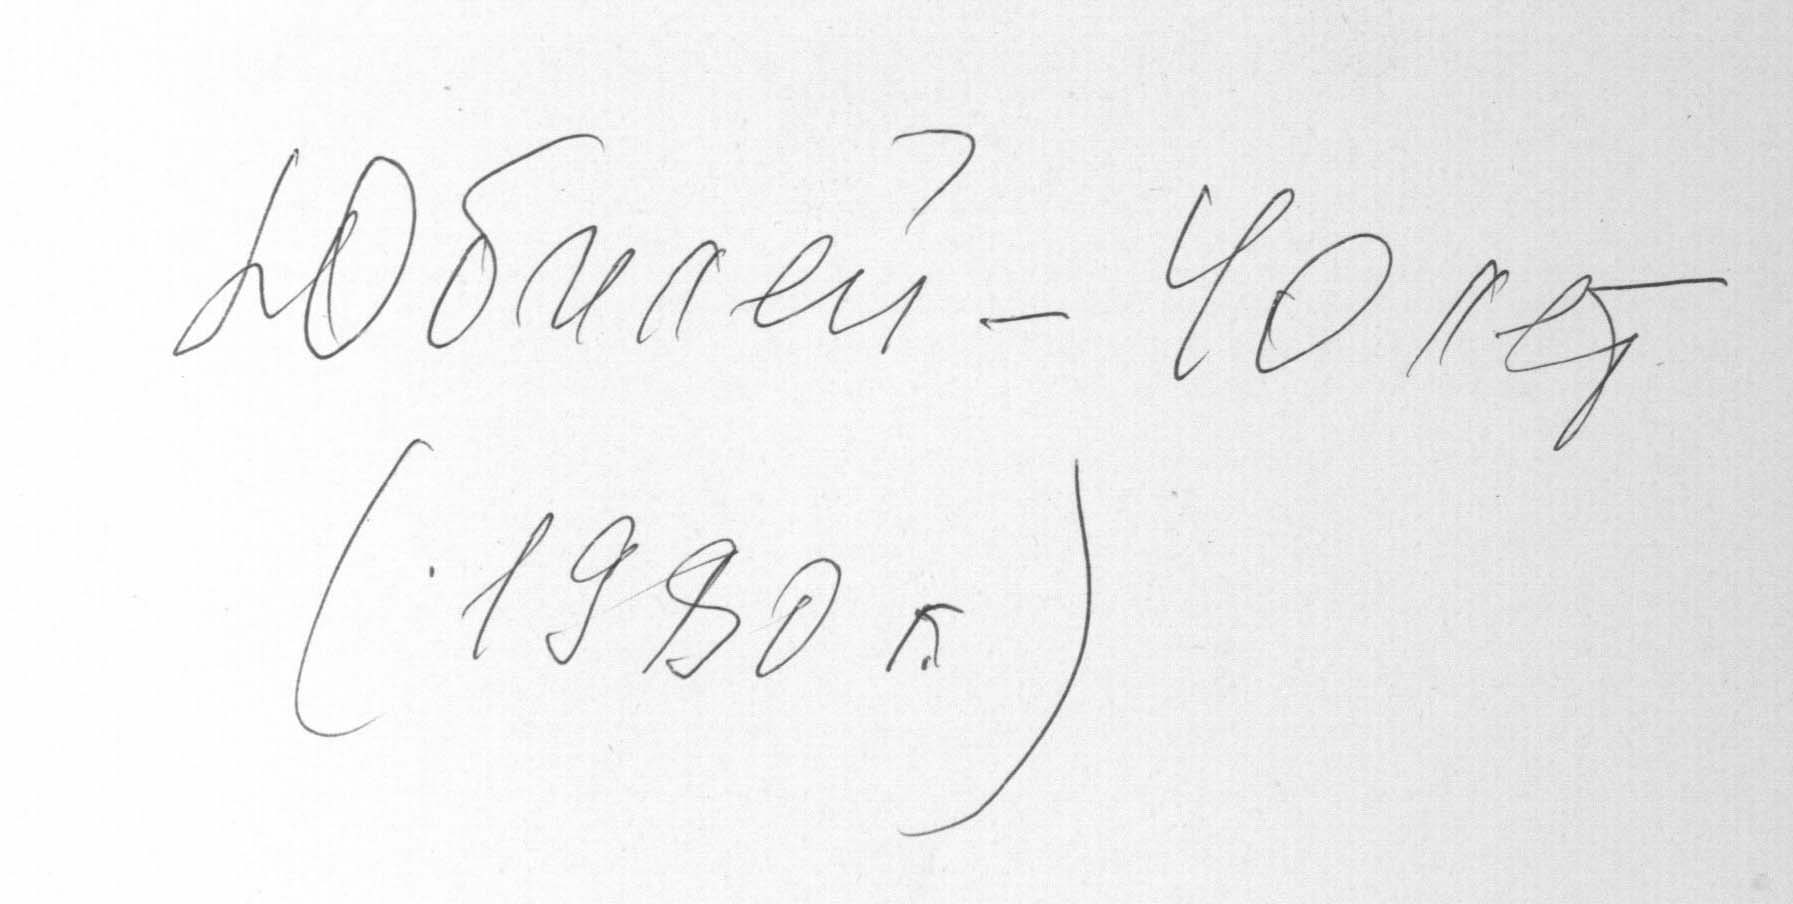 Юбилей – 40 лет
(1980 г.)